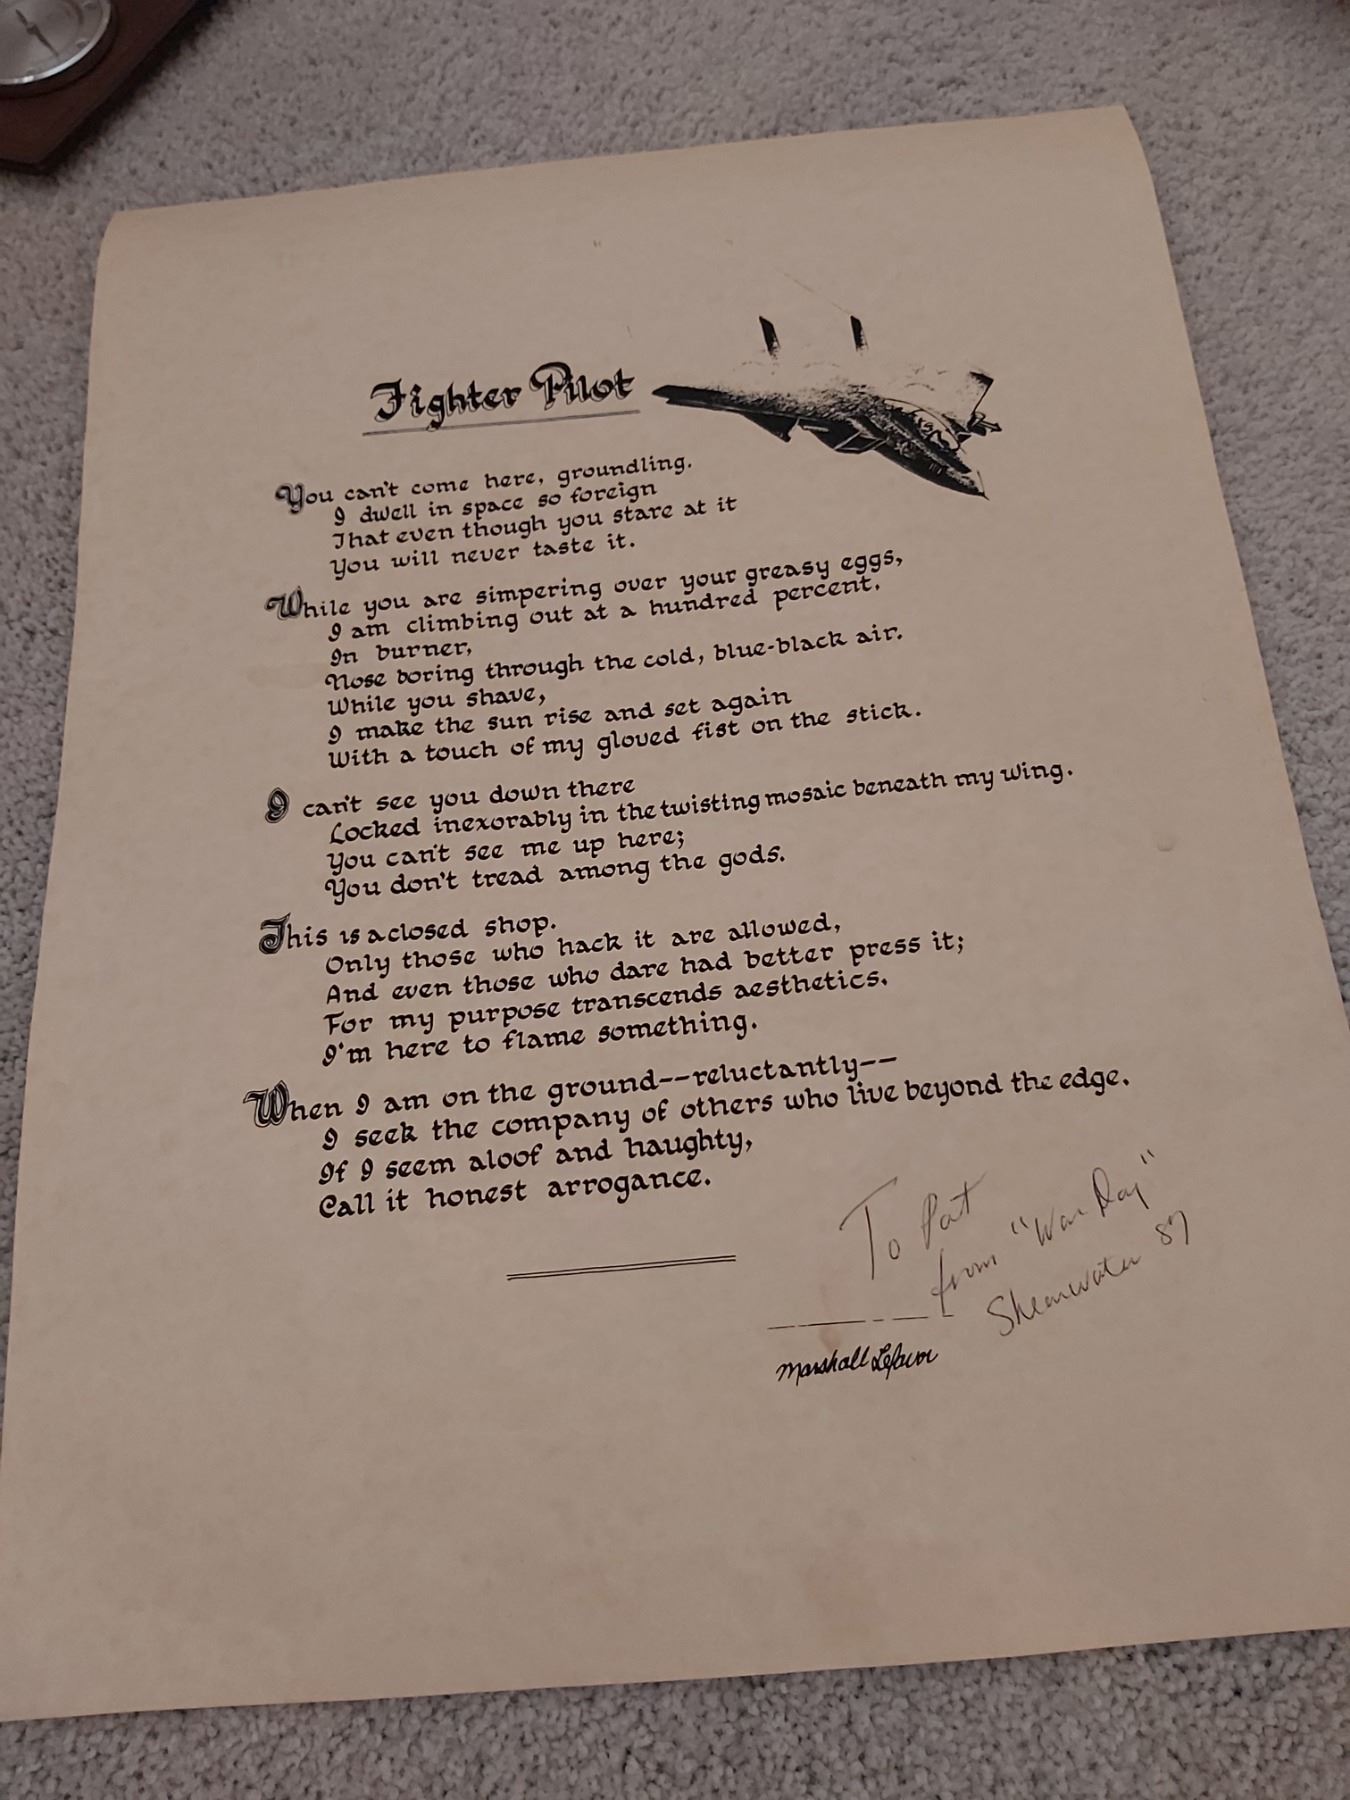 Fighter Pilot
You can't come here, groundling.
I dwell in space so foreign
That even though you stare at it
You will never taste it.
While you are simpering over your greasy eggs,
I am climbing out at a hundred percent.
In burner,
Nose boring through the cold, blue-black air.
While you shave,
I make the sun rise and set again
With a touch of my gloved fist on the stick.
I can't see you down there
Locked inexorably in the twisting mosaic beneath my wing.
You can't see me up here;
You don't tread among the gods.
This is a closed shop.
Only those who hack it are allowed,
And even those who dare had better press it;
For my purpose transcends aesthetics.
I'm here to flame something.
When I am on the ground--reluctantly--
I seek the company of others who live beyond the edge.
If I seem aloof and haughty,
Call it honest arrogance.
To Pat
from "War Day"
Shearwater 87
Marshall Lefavor